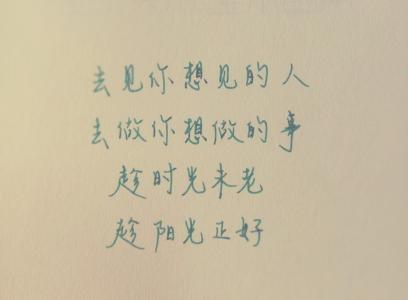 去见你想见的人
去做你想做的事
趁时光未老
趁阳光正好